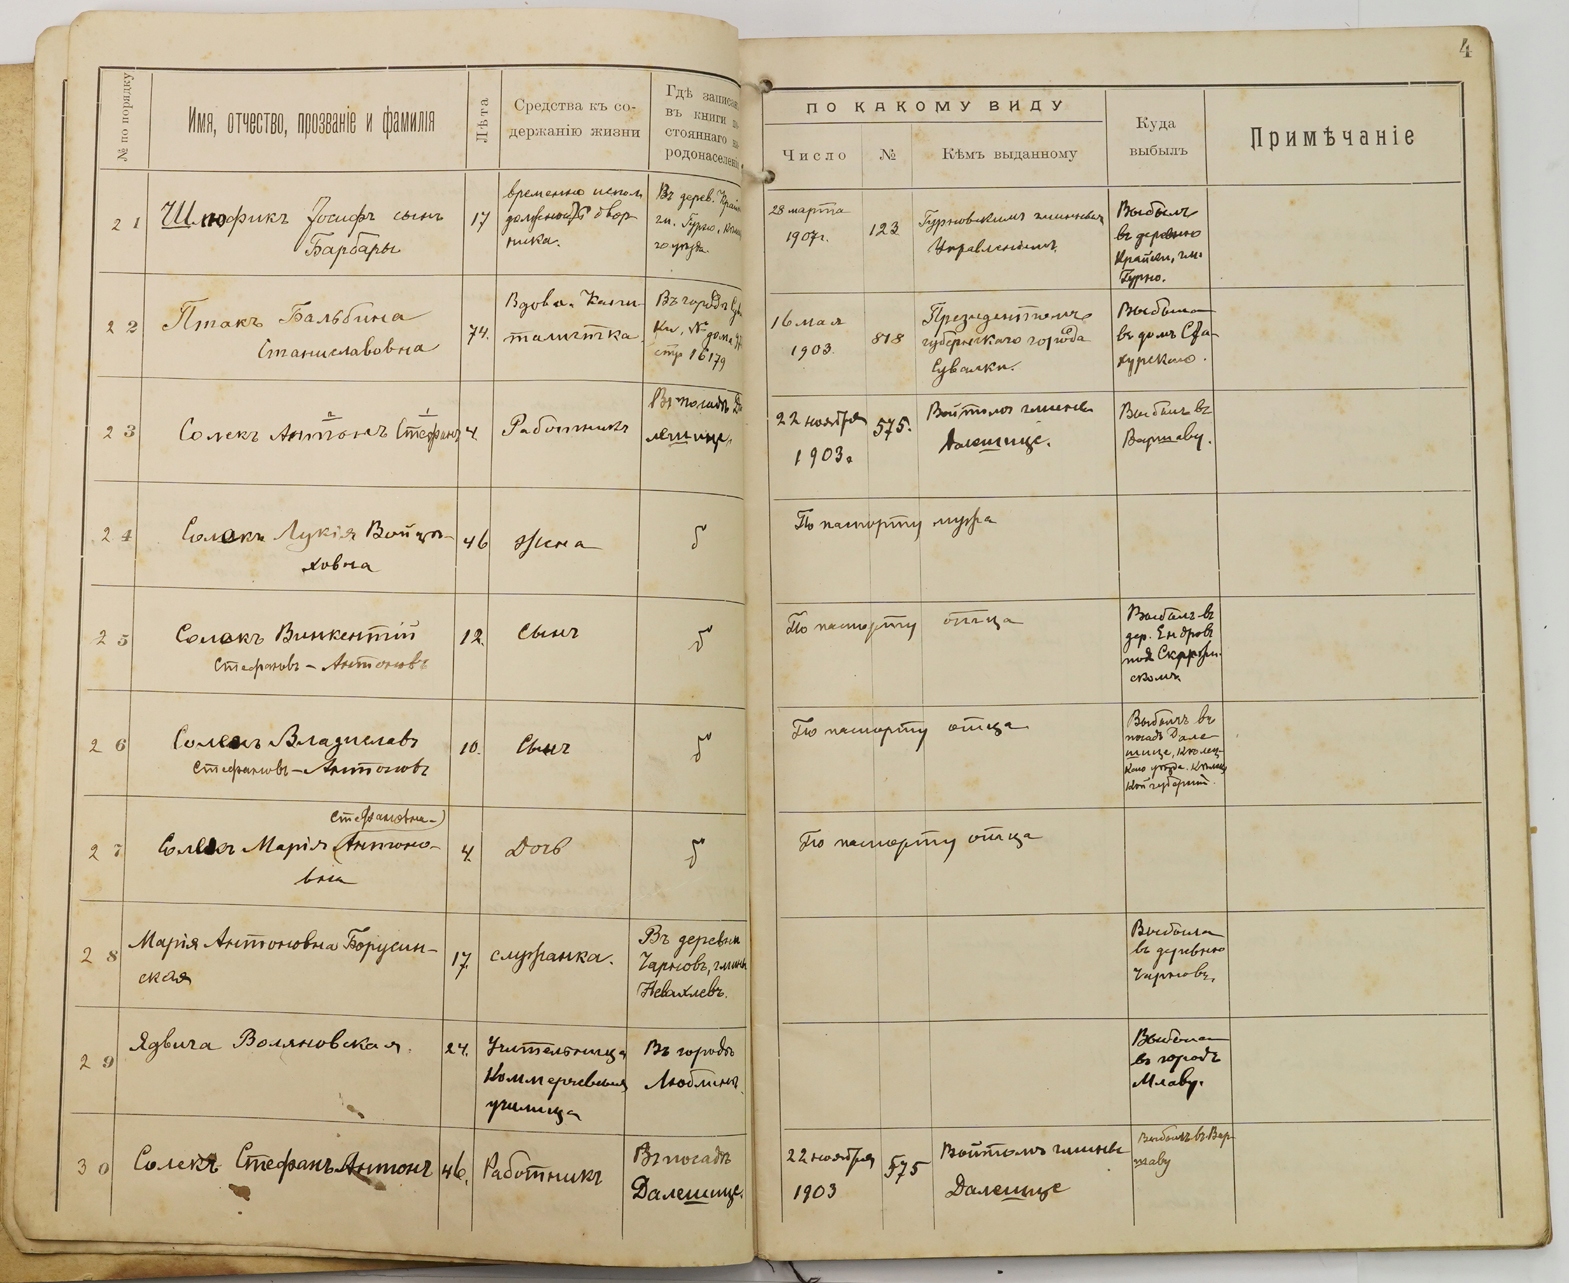 4
№ по порядку
Имя, отчество, прозваніе и фамилія
Лѣта
Средства къ со-
держанію жизни
Гдѣ записан
въ книги
стояннаго
родонаселені
ПО КАКОМУ ВИДУ
Число
№
Кѣмъ выданному
Куда
выбылъ
Примѣчаніе
21
Шлюфикъ Іосифъ сынъ
Барбары
17
временно испол.
должность двор
ника.
Въ дерев. Край
гм. Гурно,
го уѣзда.
28 марта
1907г.
123
Гурновскимъ гминнымъ
Управленіемъ.
Выбылъ
въ деревню
Крайки, гм.
Гурно.
22
Птакъ Бальбина
Станиславовна
74.
Вдова. Капи-
талистка
Въ городѣ Сув
ки, № дома
стр 16179
16 мая
1903.
818
Президентомъ
губернскаго города
Сувалки.
Выбыла
въ домъ
23
2 1
Солекъ Антонъ Стефанъ
4.
Работникъ
Въ посадѣ Да
лешице.
22 ноября
1903г
575.
Войтомъ гмины
Далешице.
Выбылъ въ
Варшаву.
24
Солекъ Лукія Войцѣ-
ховна
46
Жена
По паспорту мужа
25
Солекъ Викентій
Стефановъ - Антоновъ
12.
Сынъ
По паспорту отца
Выбылъ въ
дер. Ендровъ
26
Солекъ Владиславъ
Стефановъ - Антоновъ
10.
Сынъ
По паспорту отца
Выбылъ въ
посадъ Дале-
шице, Кѣлец-
каго уѣзда, Кѣлец
кой губерніи.
27
Стефановна-)
Солекъ Марія (Антоно-
вна
4.
Дочь
По паспорту отца
28
Марія Антоновна Борусин-
ская
17.
служанка.
Въ деревни
Чарновъ, гмины
Невахлевъ.
Выбыла
въ деревню
Чарновъ.
29
Ядвига Воляновская.
24.
Учительница
Коммерческаго
училища
Въ городѣ
Люблинѣ.
Выбыла
въ городъ
Млаву.
30
Солекъ Стефанъ Антонъ
46.
Работникъ
Въ посадѣ
Далешице.
22 ноября
1903
575
Войтомъ гмины
Далешице
Выбылъ въ Вар
шаву